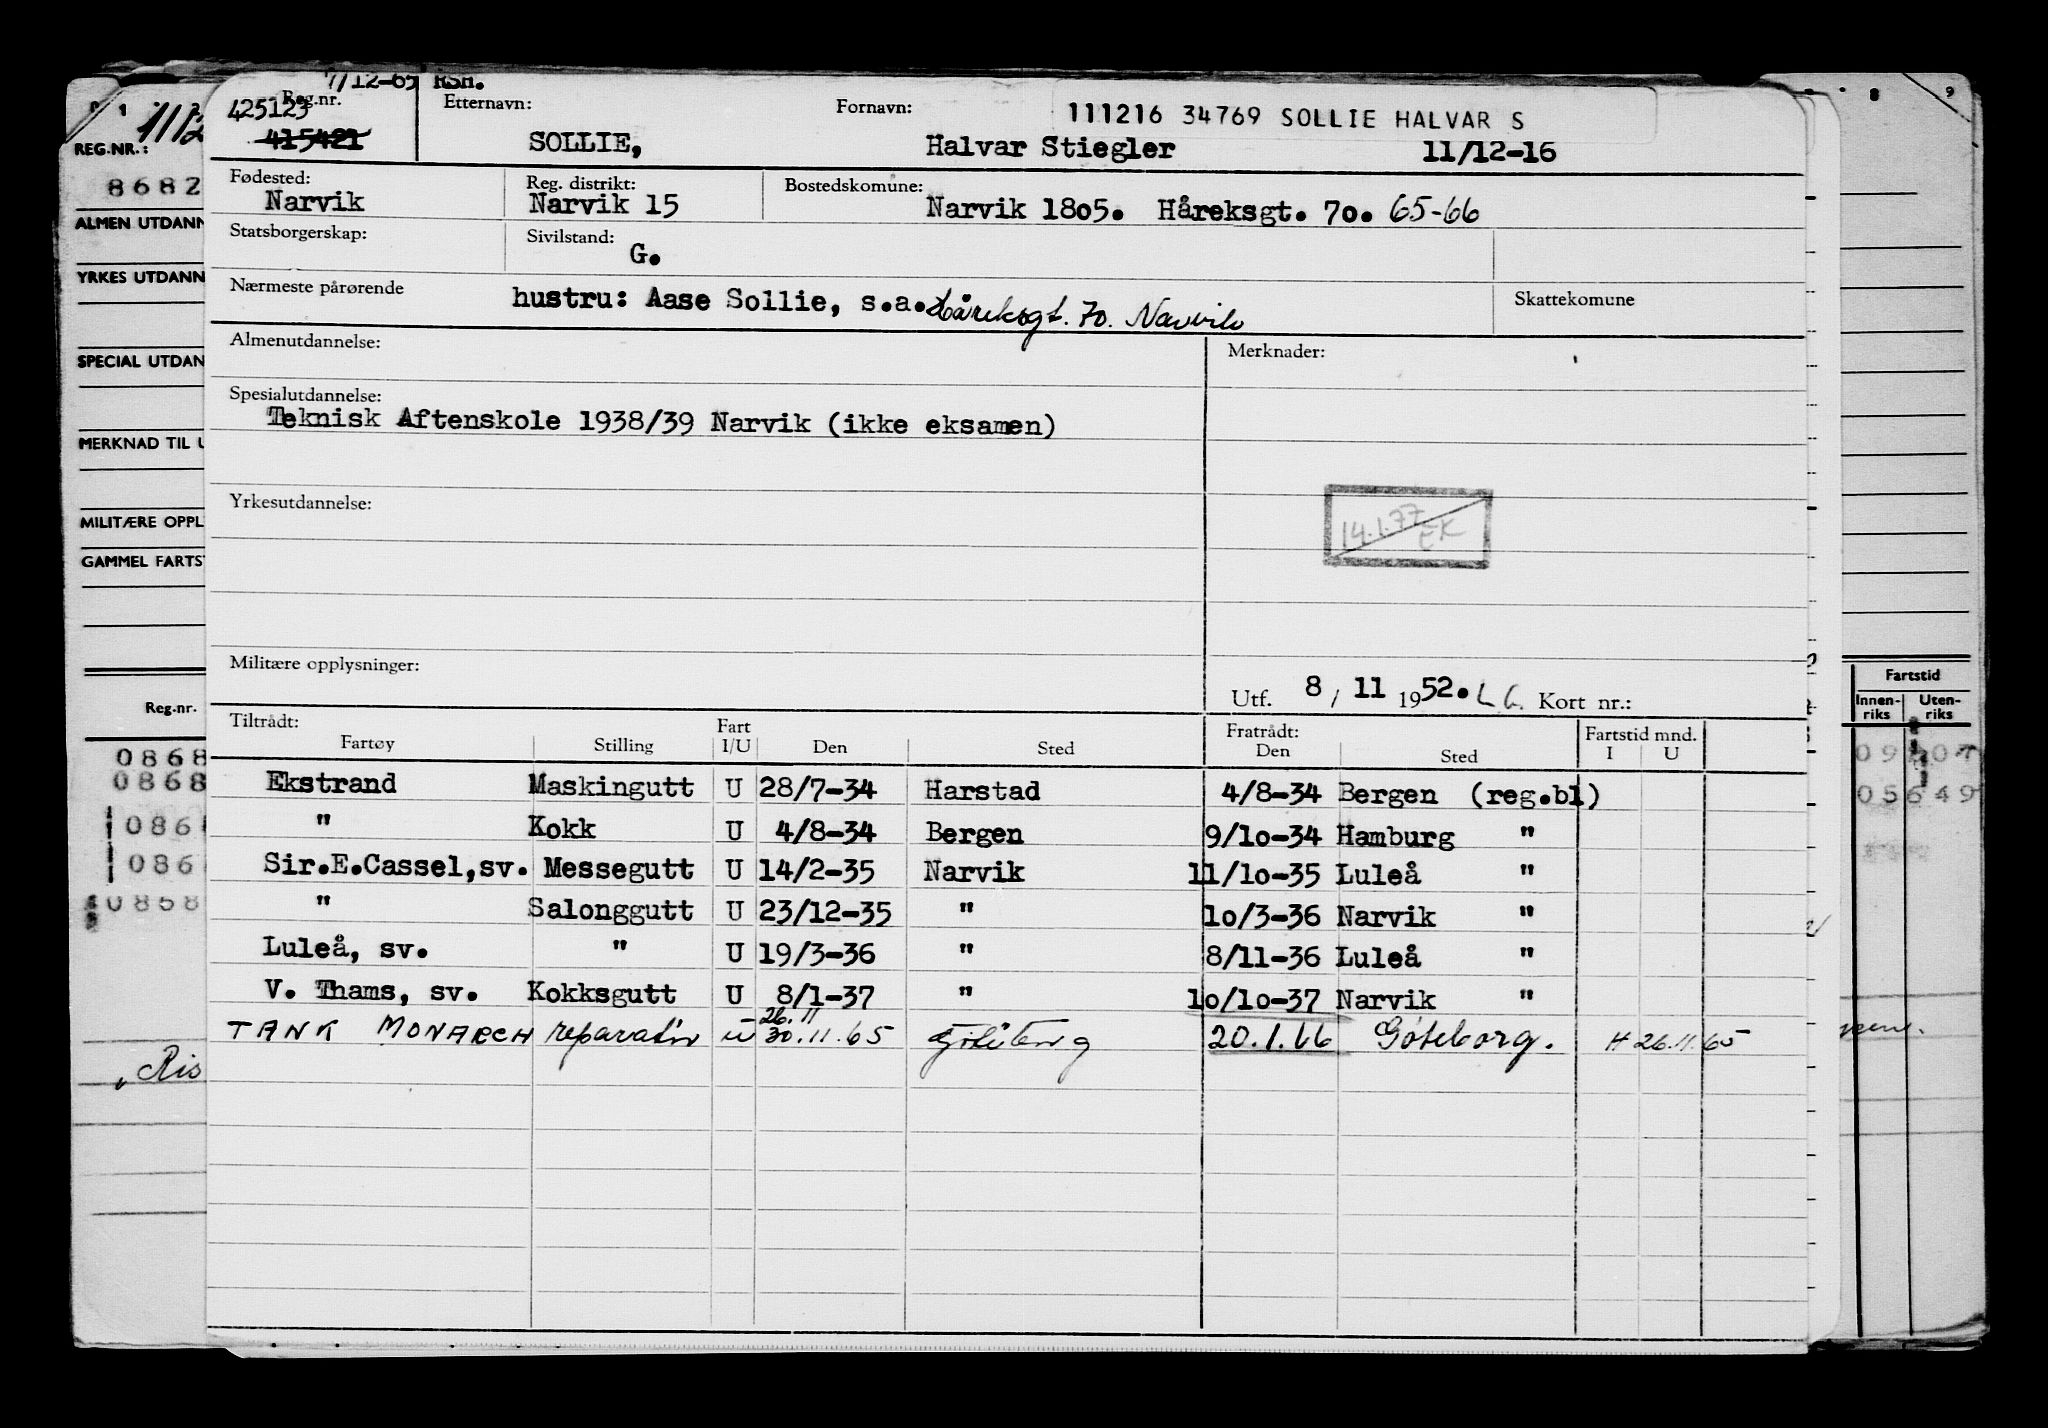 7/12-65 RSH.
Reg.nr. Etternavn: Fornavn: 111216 34769 SOLLIE HALVAR S
425123
415421 SOLLIE, Halvar Stiegler 11/12-16
Fødested: Reg. distrikt: Bostedskomune:
Narvik Narvik 15 Narvik 1805. Håreksgt. 70. 65-66
Statsborgerskap: Sivilstand:
G.
Nærmeste pårørende hustru: Aase Sollie, s.a. Håreksgt. 70. Narvik Skattekomune
Almenutdannelse: Merknader:
Spesialutdannelse:
Teknisk Aftenskole 1938/39 Narvik (ikke eksamen)
Yrkesutdannelse:
14.1.77 EK
Militære opplysninger:
Utf. 8 / 11 1952. L G. Kort nr.:
Tiltrådt: Fart Fratrådt: Fartstid mnd.
Fartøy Stilling I/U Den Sted Den Sted I U
Ekstrand Maskingutt U 28/7-34 Harstad 4/8-34 Bergen (reg.bl)
" Kokk U 4/8-34 Bergen 9/10-34 Hamburg "
Sir.E.Cassel,sv. Messegutt U 14/2-35 Narvik 11/10-35 Luleå "
" Salonggutt U 23/12-35 " 10/3-36 Narvik "
Luleå, sv. " U 19/3-36 " 8/11-36 Luleå "
V. Thams, sv. Kokksgutt U 8/1-37 " 10/10-37 Narvik "
26.11
TANK MONARCH reparatør u 30.11.65 Göteborg 20.1.66 Göteborg. H 26.11.65
REG.NR.:
8682
ALMEN UTDANN
YRKES UTDANN
SPECIAL UTDAN
MERKNAD TIL U
MILITÆRE OPPL
GAMMEL FARTST
Reg.nr.
0868
0868
086
086
0868
Ris
8 9
Fartstid
Innen-riks Uten-riks